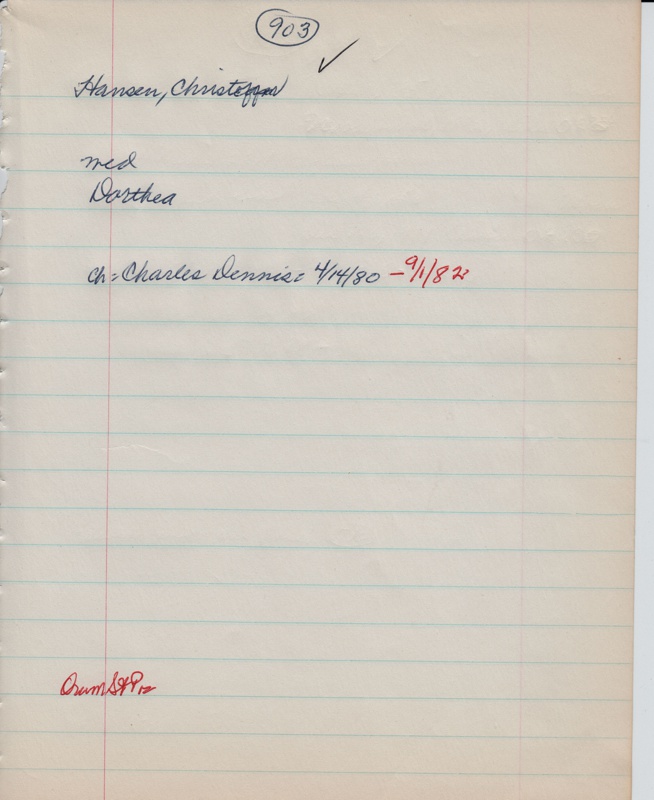 903
Hansen, Christoffer
med
Dorthea
ch: Charles Dennis: 4/14/80 – 9/1/82
Orum